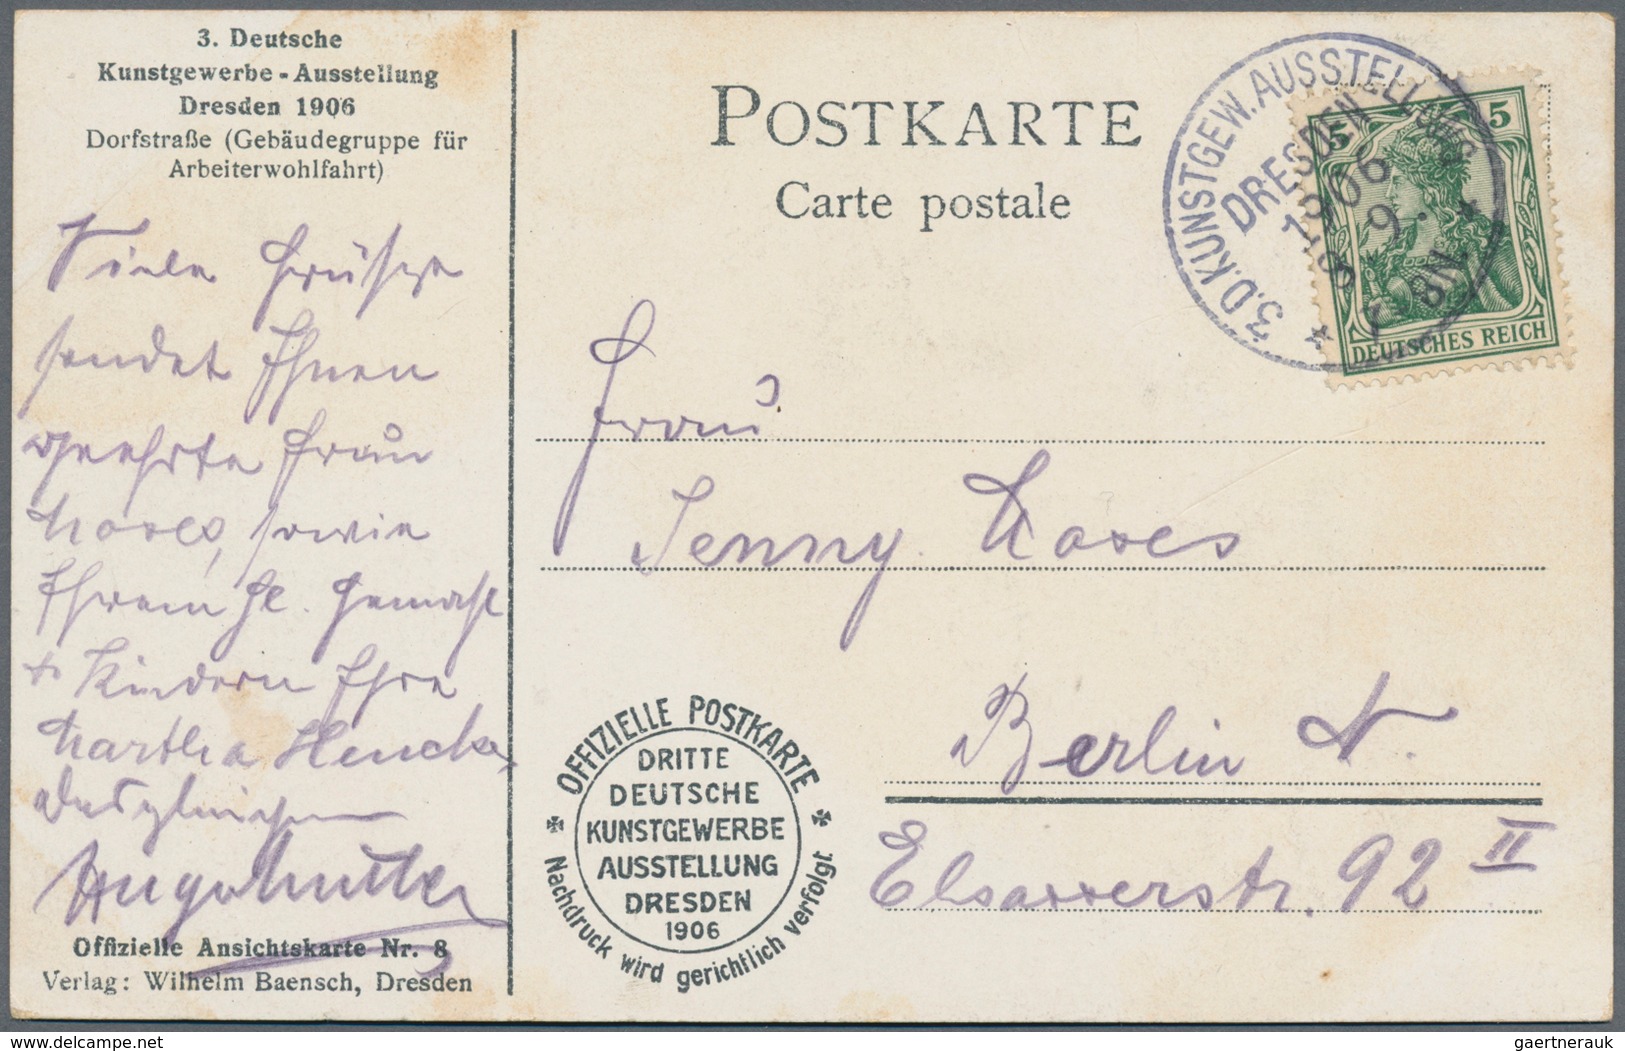 3. Deutsche
Kunstgewerbe-Ausstellung
Dresden 1906
Dorfstraße (Gebäudegruppe für
Arbeiterwohlfahrt)
Viele Grüße
sendet Ihnen
geehrte Frau
Moses, sowie
Ihrem Hr. Gemahl
+ Kindern Ihre
Martha Hencke,
desgleichen
Offizielle Ansichtskarte Nr. 8
Verlag: Wilhelm Baensch, Dresden
POSTKARTE
Carte postale
3.D.KUNSTGEW.AUSSTELLUNG
DRESDEN
1906
9.
8N.
5 5
DEUTSCHES REICH
Frau
Jenny Moses
Berlin N.
Elsasserstr. 92 II
OFFIZIELLE POSTKARTE
DRITTE
DEUTSCHE
KUNSTGEWERBE
AUSSTELLUNG
DRESDEN
1906
Nachdruck wird gerichtlich verfolgt
www.delcampe.net
gaertnerauk